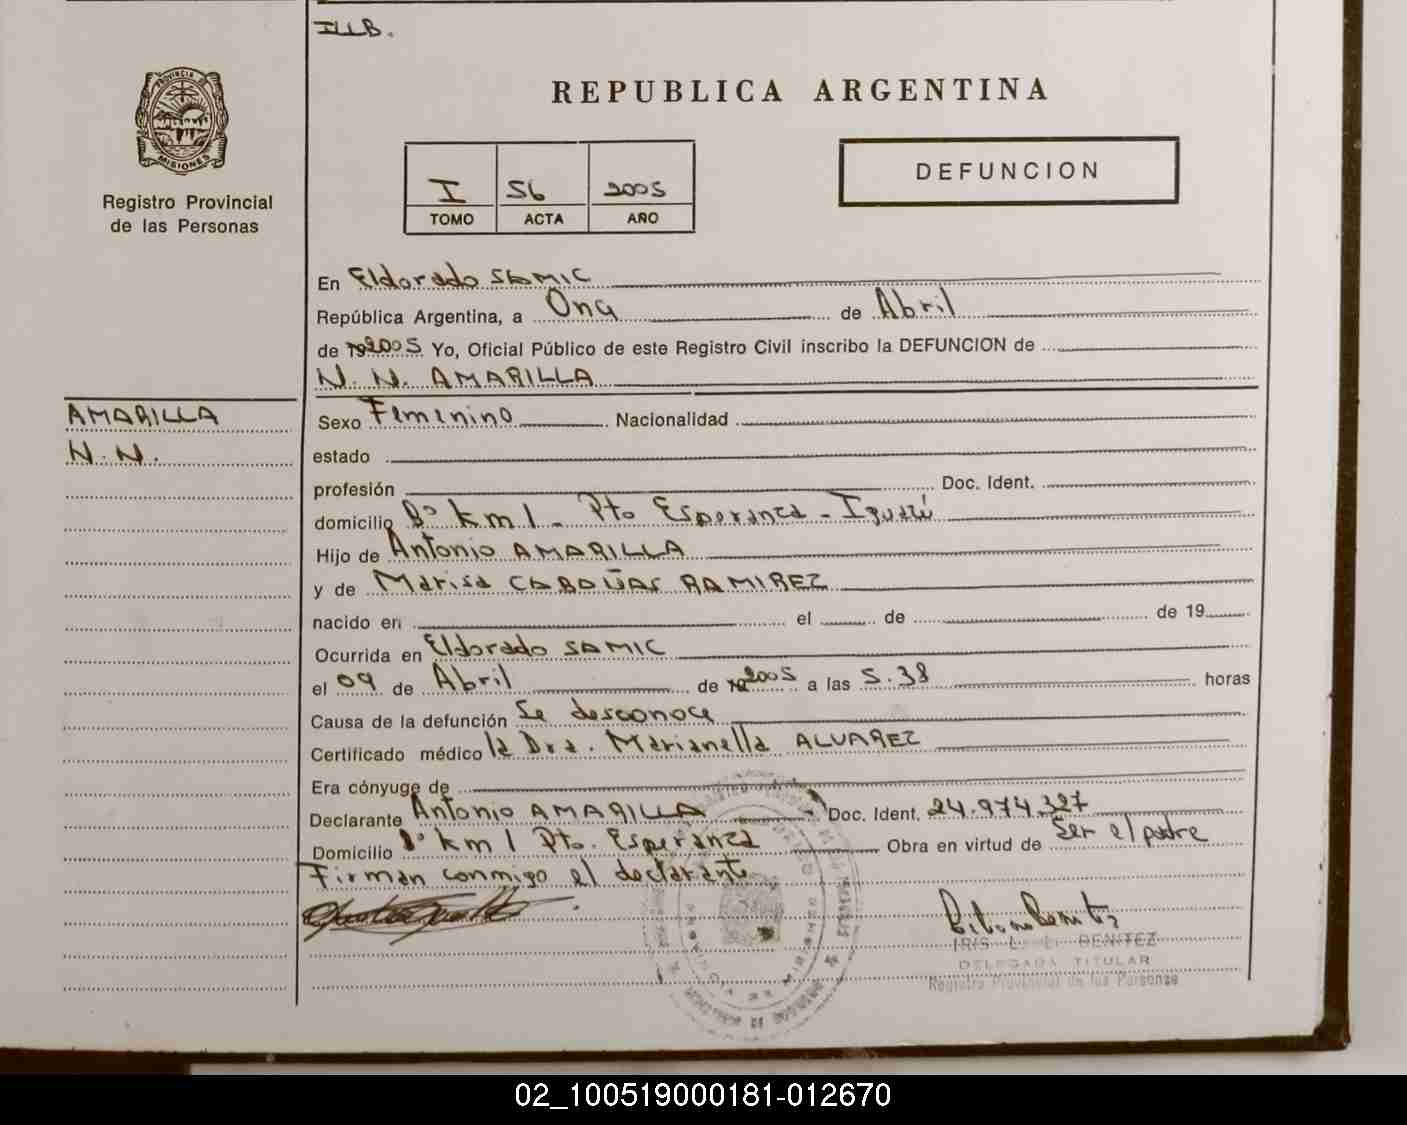 ILLB.
REPUBLICA ARGENTINA
PROVINCIA DE MISIONES
Registro Provincial
de las Personas
I 56 2005
TOMO ACTA AÑO
DEFUNCION
En Eldorado SAMIC
República Argentina, a Onc de Abril
de 192005 Yo, Oficial Público de este Registro Civil inscribo la DEFUNCION de
N. N. AMARILLA
AMARILLA
N. N.
Sexo Femenino Nacionalidad
estado
profesión Doc. Ident.
domicilio Bº km 1 - Pto Esperanza - Iguazú
Hijo de Antonio AMARILLA
y de Marisa CABAÑAS RAMIREZ
nacido en el de de 19
Ocurrida en Eldorado SAMIC
el 09 de Abril de 192005 a las 5.38 horas
Causa de la defunción Se desconoce
Certificado médico la Dra. Marianella ALVAREZ
Era cónyuge de
Declarante Antonio AMARILLA Doc. Ident. 24.974.327
Domicilio Bº km 1 Pto. Esperanza Obra en virtud de Ser el padre
Firman conmigo el declarante
IRIS L. L. BENITEZ
DELEGADA TITULAR
Registro Provincial de las Personas
02_100519000181-012670